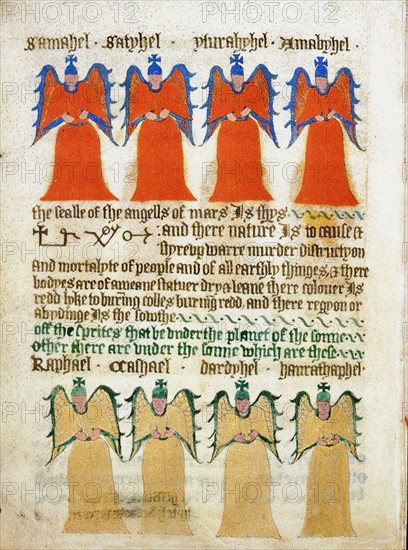 Samahel · Satyhel · yturahyhel · Amabyhel ·
the sealle of the angells of mars Is thys
: and there nature Is to cause &
styreup warre murder distructyon
and mortalyte of people and of all earthly thinges, & there
bodyes are of a meane statuer drye & leane there colouer Is
redd lyke to buring colles buring redd and there regyon or
abydinge Is the sowthe
off the sprites that be under the planet of the sonne
other there are under the sonne which are these
Raphael · Cashael · dardyhel · hanrathaphel ·
PHOTO12